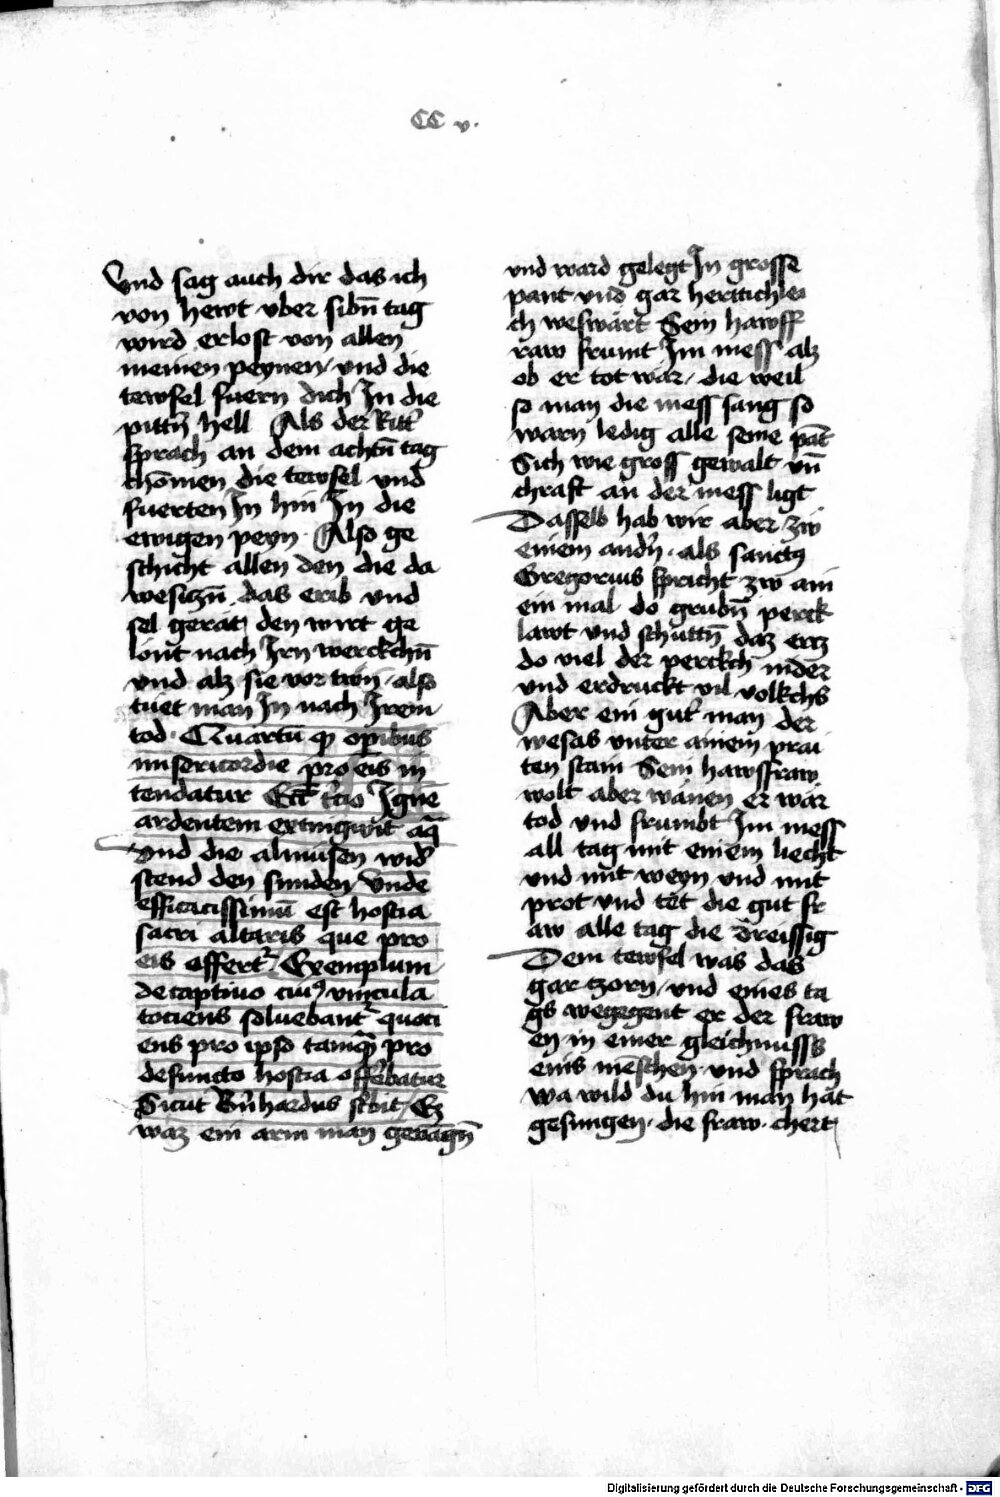 CC v.
Und sag auch dir das ich
von hewt vber sibn̄ tag
wird erlost von allen
meinen peynen / und die
tewfel fuern dich In die
pittn̄ hell Als der Ritt̄
sprach an dem achtn̄ tag
chōmen die tewfel und
fuerten In hin In die
ewigen peyn · Also ge
schicht allen den die da
wesiczn̄ das erib und
sel gerät den wirt ge
lönt nach Irn werckchn̄
vnd alz sie vor twn̄ · also
tüet man In nach Irem
tod · Quartū ꝙ operibus
misericordie pro eis in
tendatur Ecc̄ t̄cio Ignē
ardentem extingwit aq̄
Und die almüsen wid̄
stend den sunden / Unde
efficacissimū est hostia
sacri altaris que pro
eis offert᷑ / Exemplum
de captiuo cui⁹ vincula
tociens soluebant᷑ quoci
ens pro ipso tamꝙ̄ pro
defuncto hostia offerebatur
Sicut B̄nhardus sc̄bit / Ez
waz ein arm man gevāgn̄
vnd ward gelegt In grosse
pant vnd gar herttichlei
ch weswärt Sein hawsf
raw frumt Im mess alz
ob er tot wär / die weil
so man die mess sang so
warn ledig alle seine pāt
Sich wie gross gewalt vn̄
chraft an der mess ligt
Dasselb hab wir aber zw
einem and̄n · als sanctus
Gregorius spricht zw ain
ein mal do grubn̄ perck
lawt vnd schuttn̄ daz ercz
do viel der perckch nider
vnd erdruckt vil volkchs
Aber ein gut̄ man der
wesas vnter ainem prai
ten stain Sein hawsfraw
wolt aber wänen er wär
tod vnd frumbt Im mess
all tag mit einem liecht
vnd mit weyn vnd mit
prot vnd tët die gut fr
aw alle tag die dreissig
Dem tewfel was das
gar tzorn / vnd eines ta
gs wegegent er der fraw
en in einer gleichnusss
eins mēschen vnd sprach
wa wild du hin man hat
gesungen · die fraw · chert
Digitalisierung gefördert durch die Deutsche Forschungsgemeinschaft - DFG